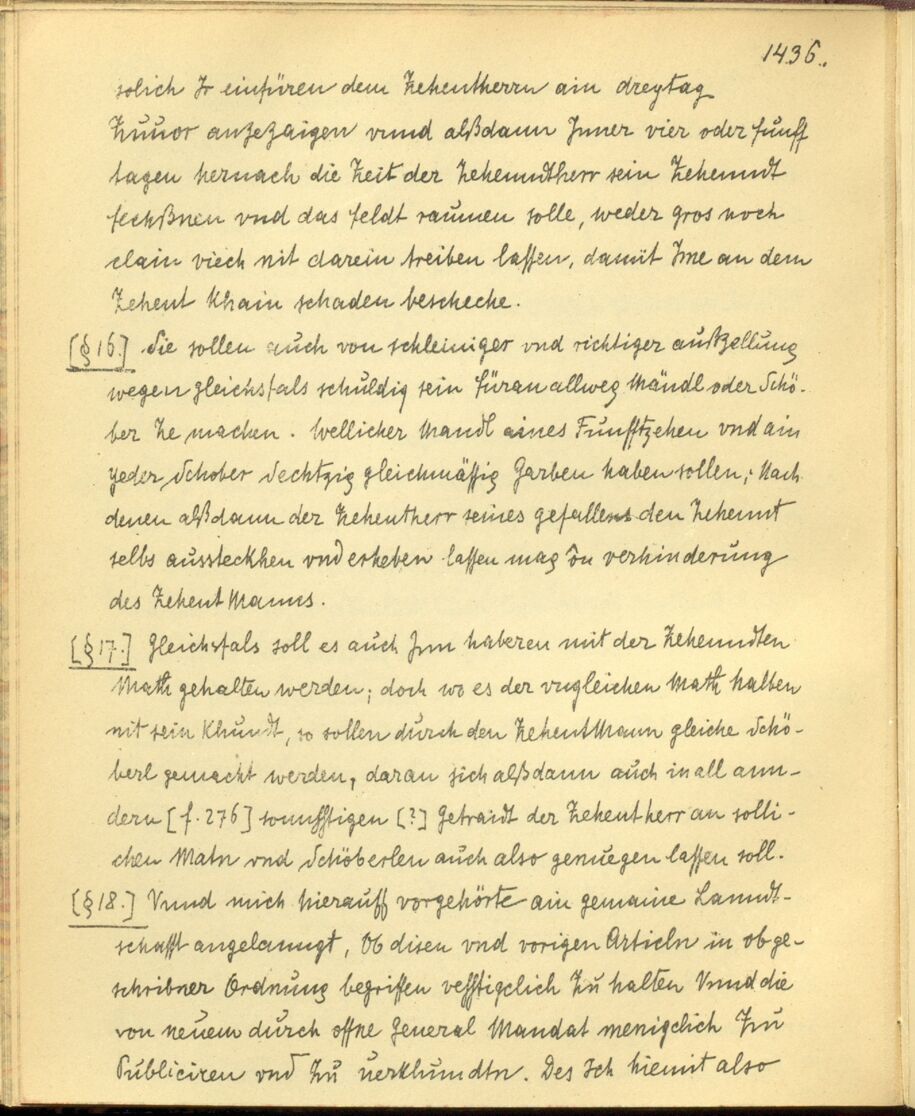 1436.
solich Ir einfüren dem Zehentherrn ain dreytag
Zuuor anzezaigen vnnd alßdann Inner vier oder funff
tagen hernach die Zeit der Zehenndtherr sein Zehenndt
fechßnen vnd das feldt raumen solle, weder gros noch
clain viech nit darein treiben lassen, damit Ime an dem
Zehent Khain schaden bescheche.
[§ 16.] Sie sollen auch von schleiniger vnd richtiger außzellung
wegen gleichsfals schuldig sein füran allweg Mändl oder Schö-
ber Ze machen. Wellicher Mandl aines Funfftzehen vnd ain
yeder Schober Sechtzig gleichmässig Garben haben sollen; Nach
denen alßdann der Zehentherr seines gefallens den Zehennt
selbs ausstecken vnd erheben lassen mag on verhinderung
des Zehent Manns.
[§ 17.] Gleichsfals soll es auch Inn haberen mit der Zehenndten
Math gehalten werden; doch wo es der vngleichen Math halben
nit sein Khundt, so sollen durch den Zehent Mann gleiche Schö-
berl gemacht werden, daran sich alßdann auch in all ann-
dern [f. 276] sonnfftigen [?] Getraidt der Zehentherr an solli-
chen Matn vnd Schöberlen auch also genuegen lassen soll.
[§ 18.] Vnnd mich hierauff vorgehörte ain gemaine Lanndt-
schafft angelanngt, Ob disen vnd vorigen Articln in obge-
schribner Ordnung begriffen vesstigclich Zu halten Vnnd die
von neuem durch offne General Mandat menigclich Zu
Publiciren vnd Zu uerkhundtn. Des Ich hiemit also